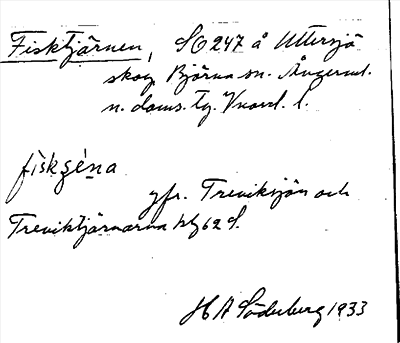 Fisktjärnen, SO 247 å Uttersjö
skog Björna sn. Ångerml.
n. doms. tg. Vnorrl. l.
fiskşèṇa
jfr. Treviksjön och
Treviktjärnarna kbl 62 S.
H A Söderberg 1933